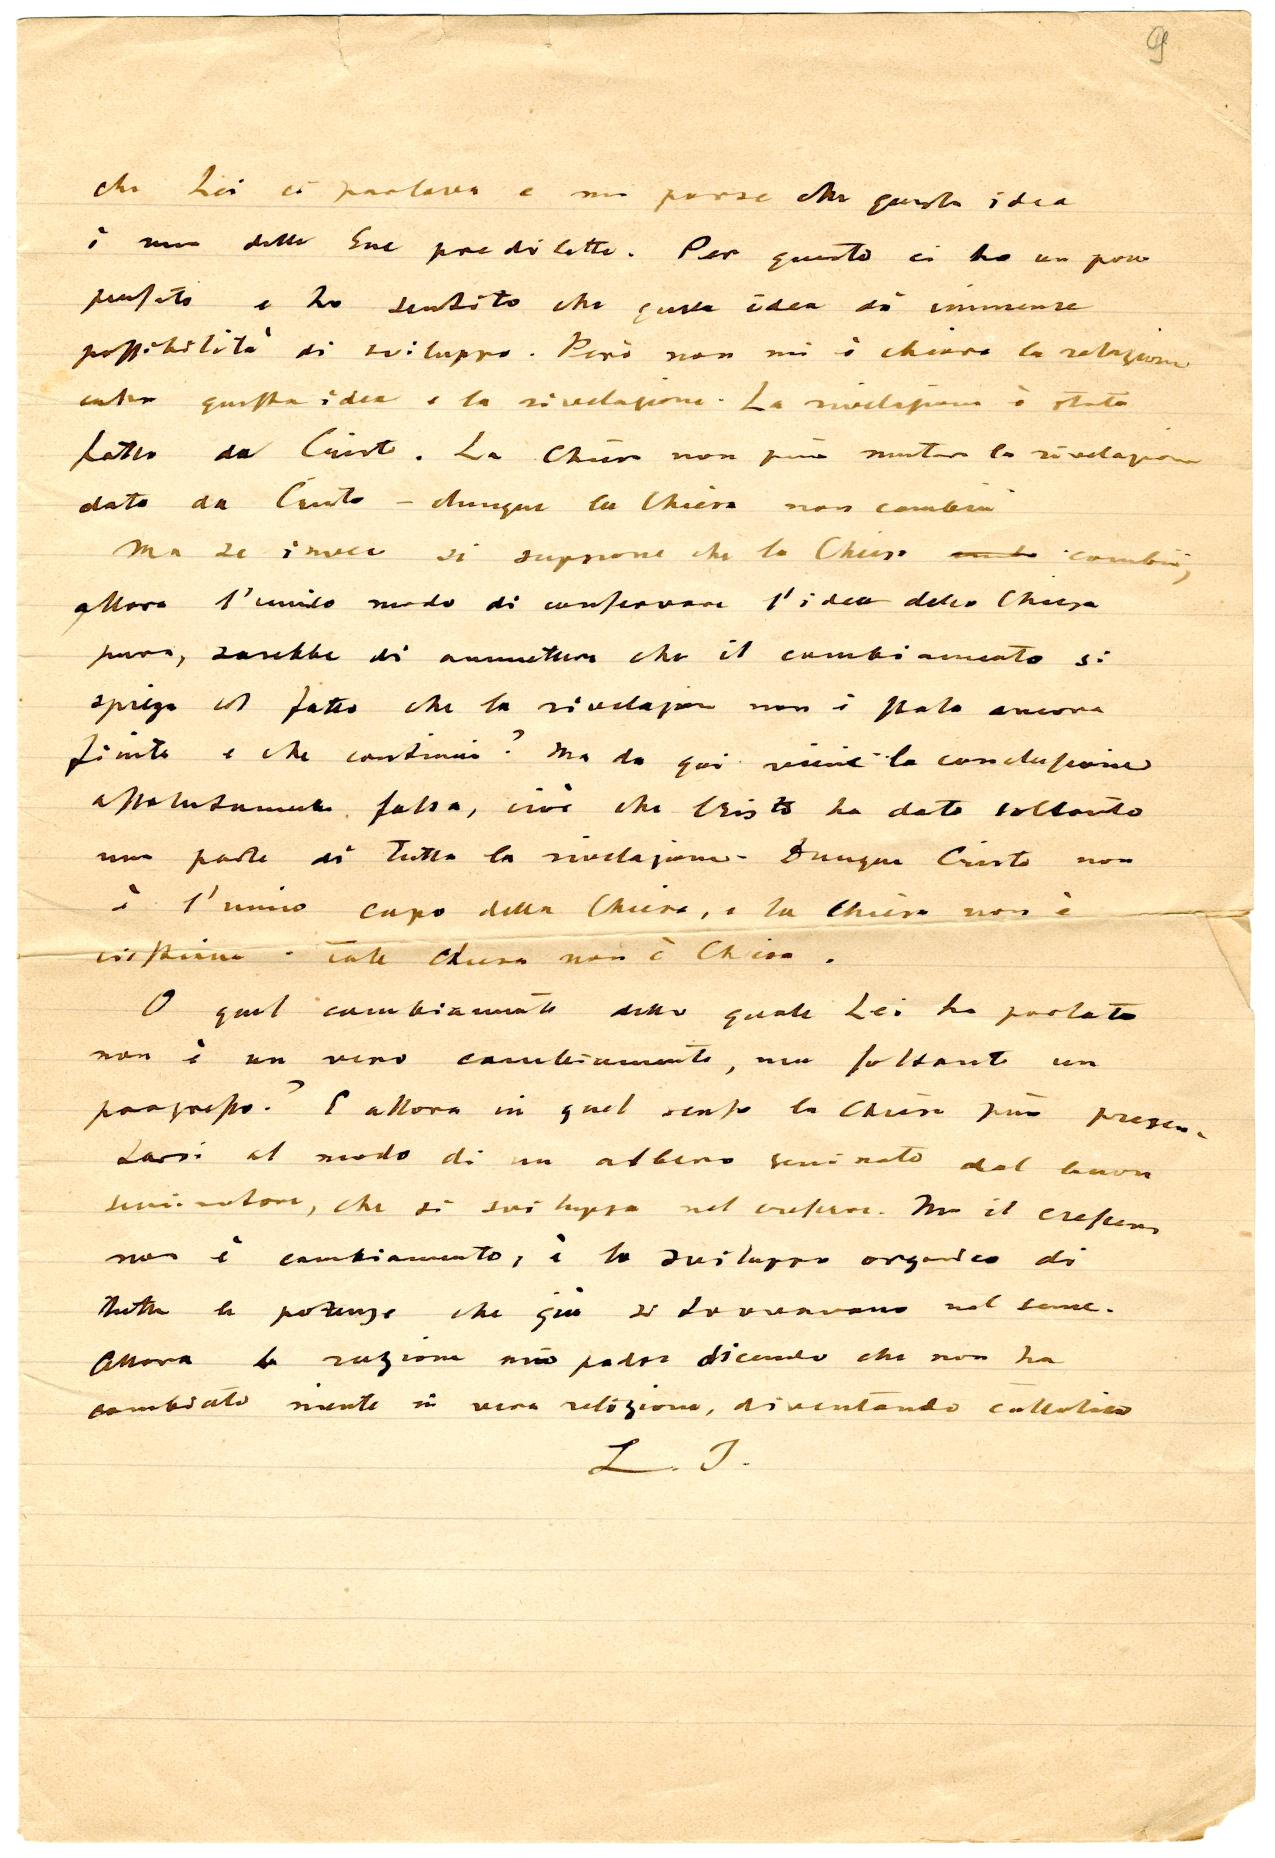 9
che Lei ci parlava e mi parse che questa idea
è una delle Sue predilette. Per questo ci ho un poco
pensato e ho sentito che questa idea dà immense
possibilità di sviluppo. Però non mi è chiara la relazione
entro questa idea e la rivelazione. La rivelazione è stata
fatta da Cristo. La Chiesa non può mutare la rivelazione
data da Cristo – dunque la Chiesa non cambia
Ma se invece si suppone che la Chiesa cambia,
allora l'unico modo di conservare l'idea della Chiesa
pura, sarebbe di ammettere che il cambiamento si
spiega col fatto che la rivelazione non è stata ancora
finita e che continui? Ma da qui viene la conclusione
assolutamente falsa, cioè che Cristo ha dato soltanto
una parte di tutta la rivelazione – Dunque Cristo non
è l'unico capo della Chiesa, e la Chiesa non è
cristiana – tale Chiesa non è Chiesa.
O quel cambiamento della quale Lei ha parlato
non è un vero cambiamento, ma soltanto un
progresso? E allora in quel senso la Chiesa può presen-
tarsi al modo di un albero seminato dal buon
seminatore, che si sviluppa nel crescere. Ma il crescere
non è cambiamento, è lo sviluppo organico di
tutte le potenze che già si trovavano nel seme.
Allora ha ragione mio padre dicendo che non ha
cambiato niente in vera religione, diventando cattolico
L. I.